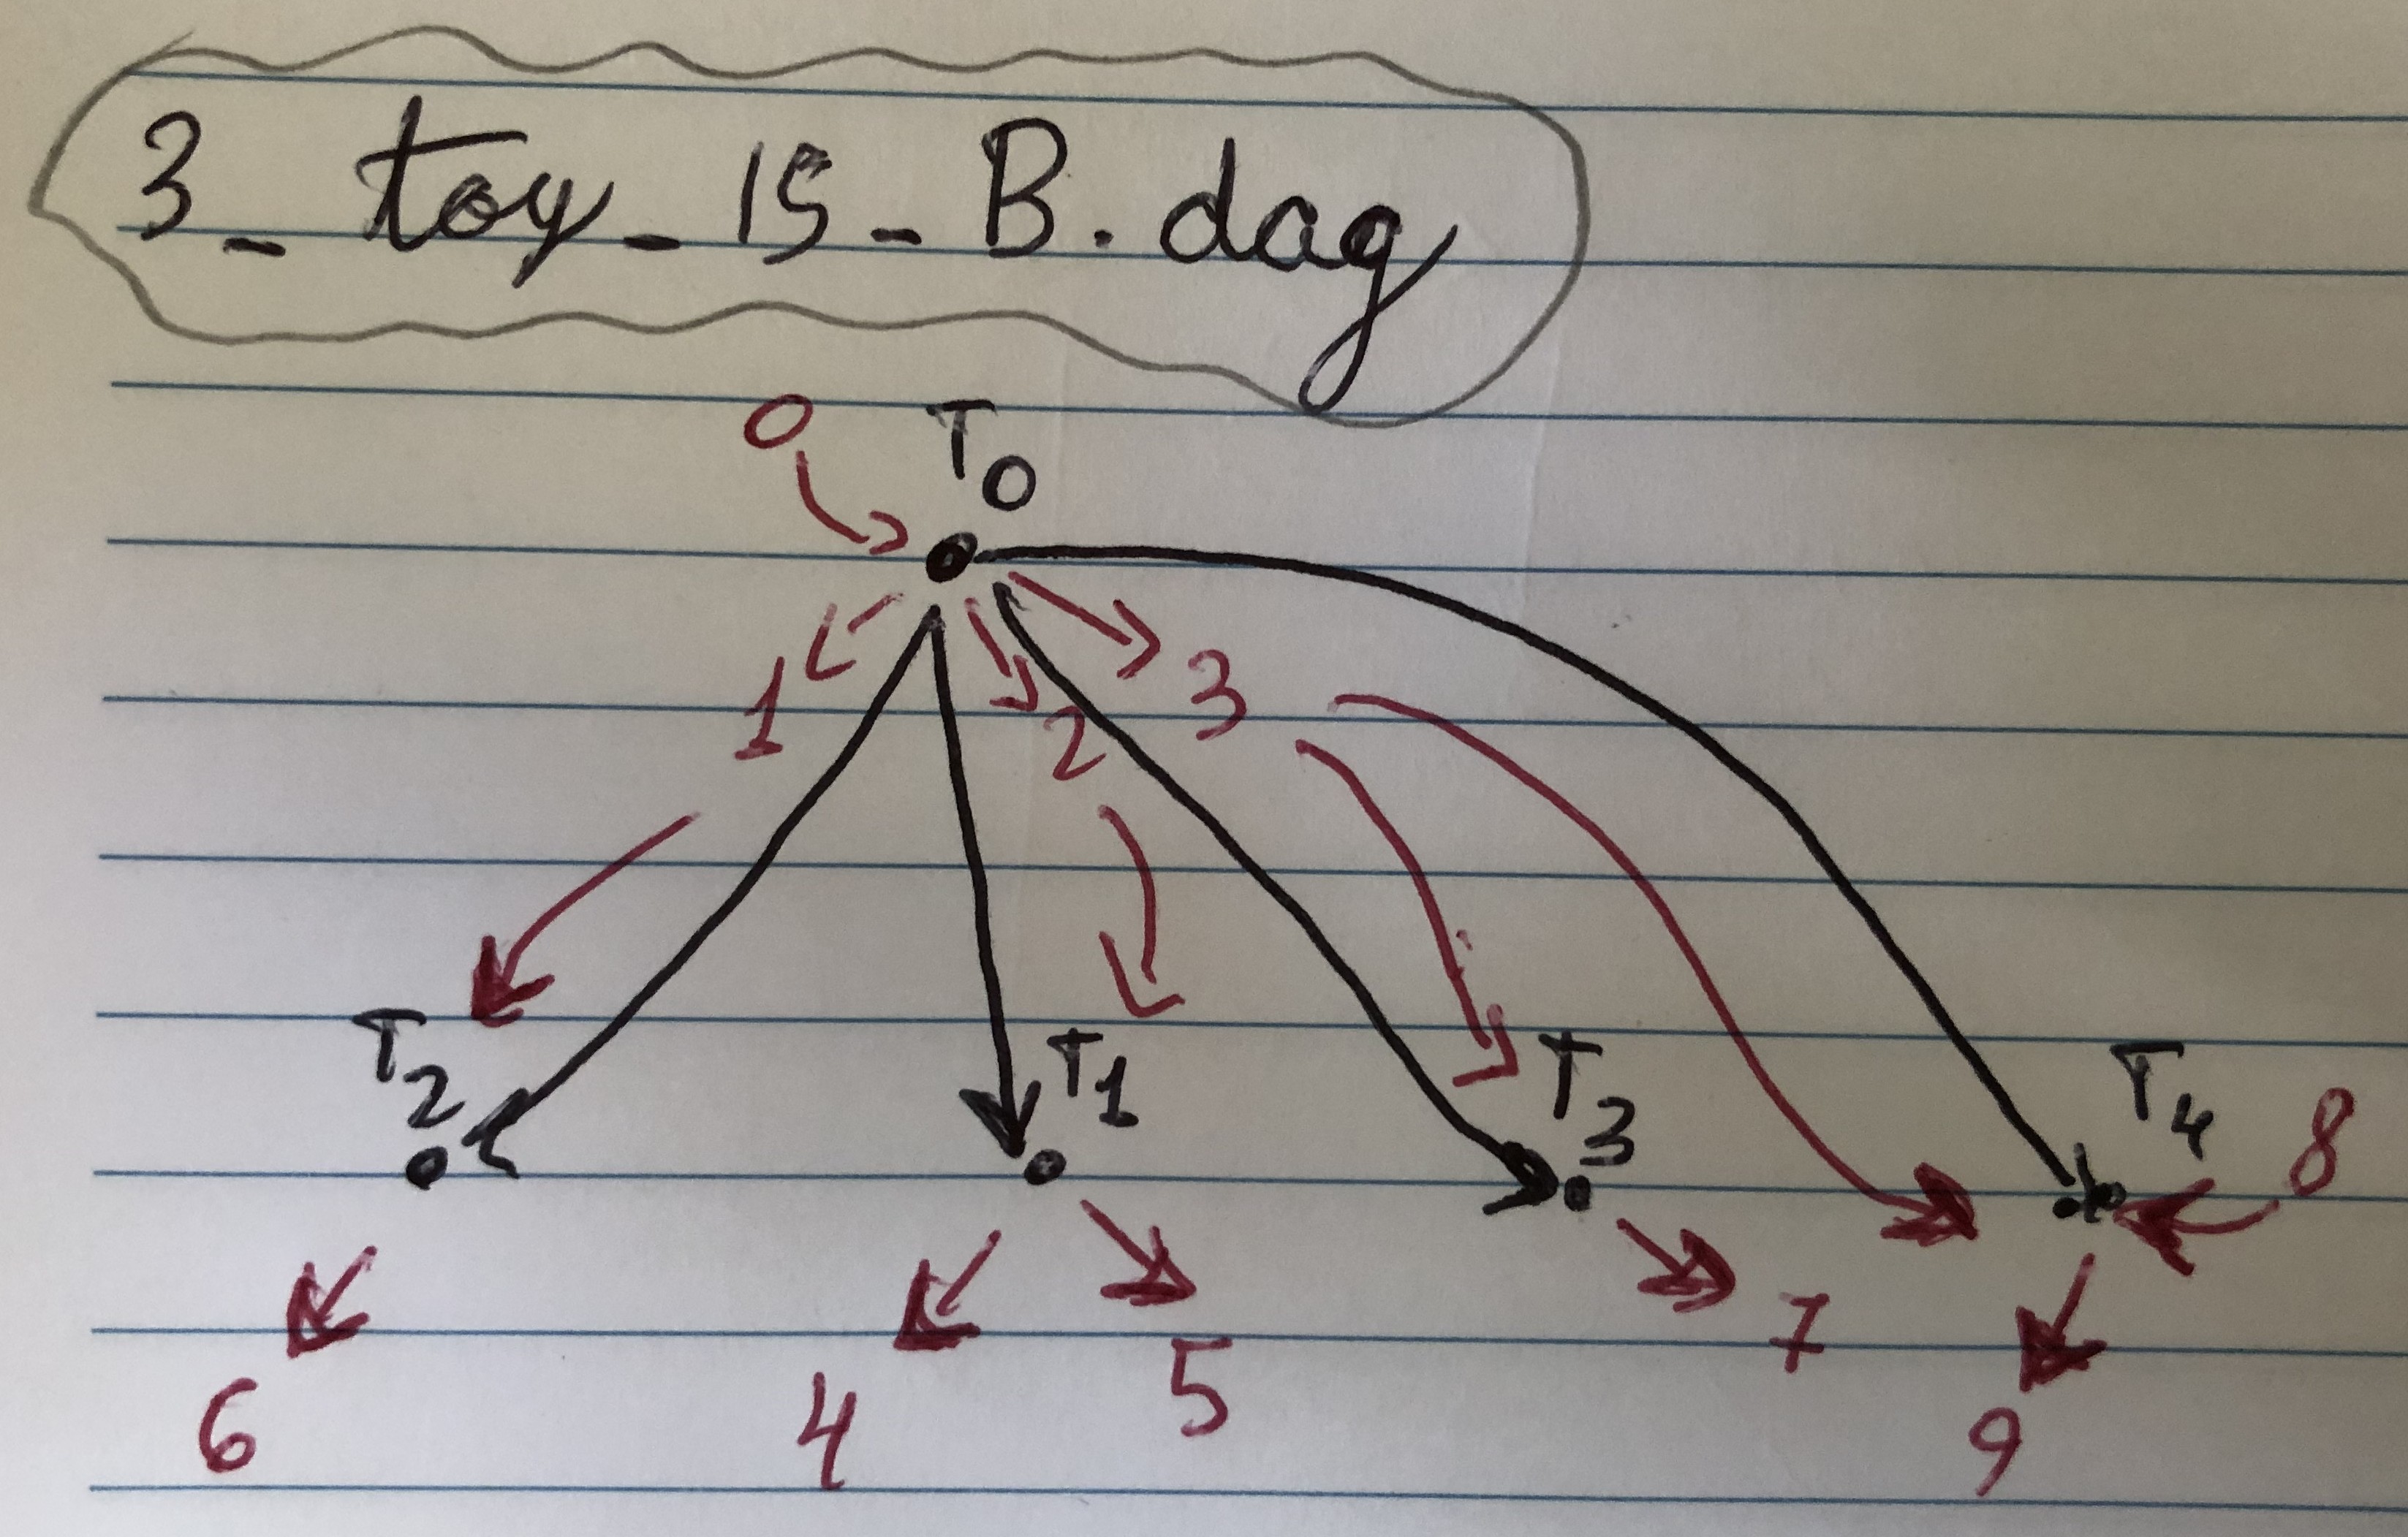 3_toy_15_B.dag
0 T0
1 2 3
T2 T1 T3 T4 8
6 4 5 7 9